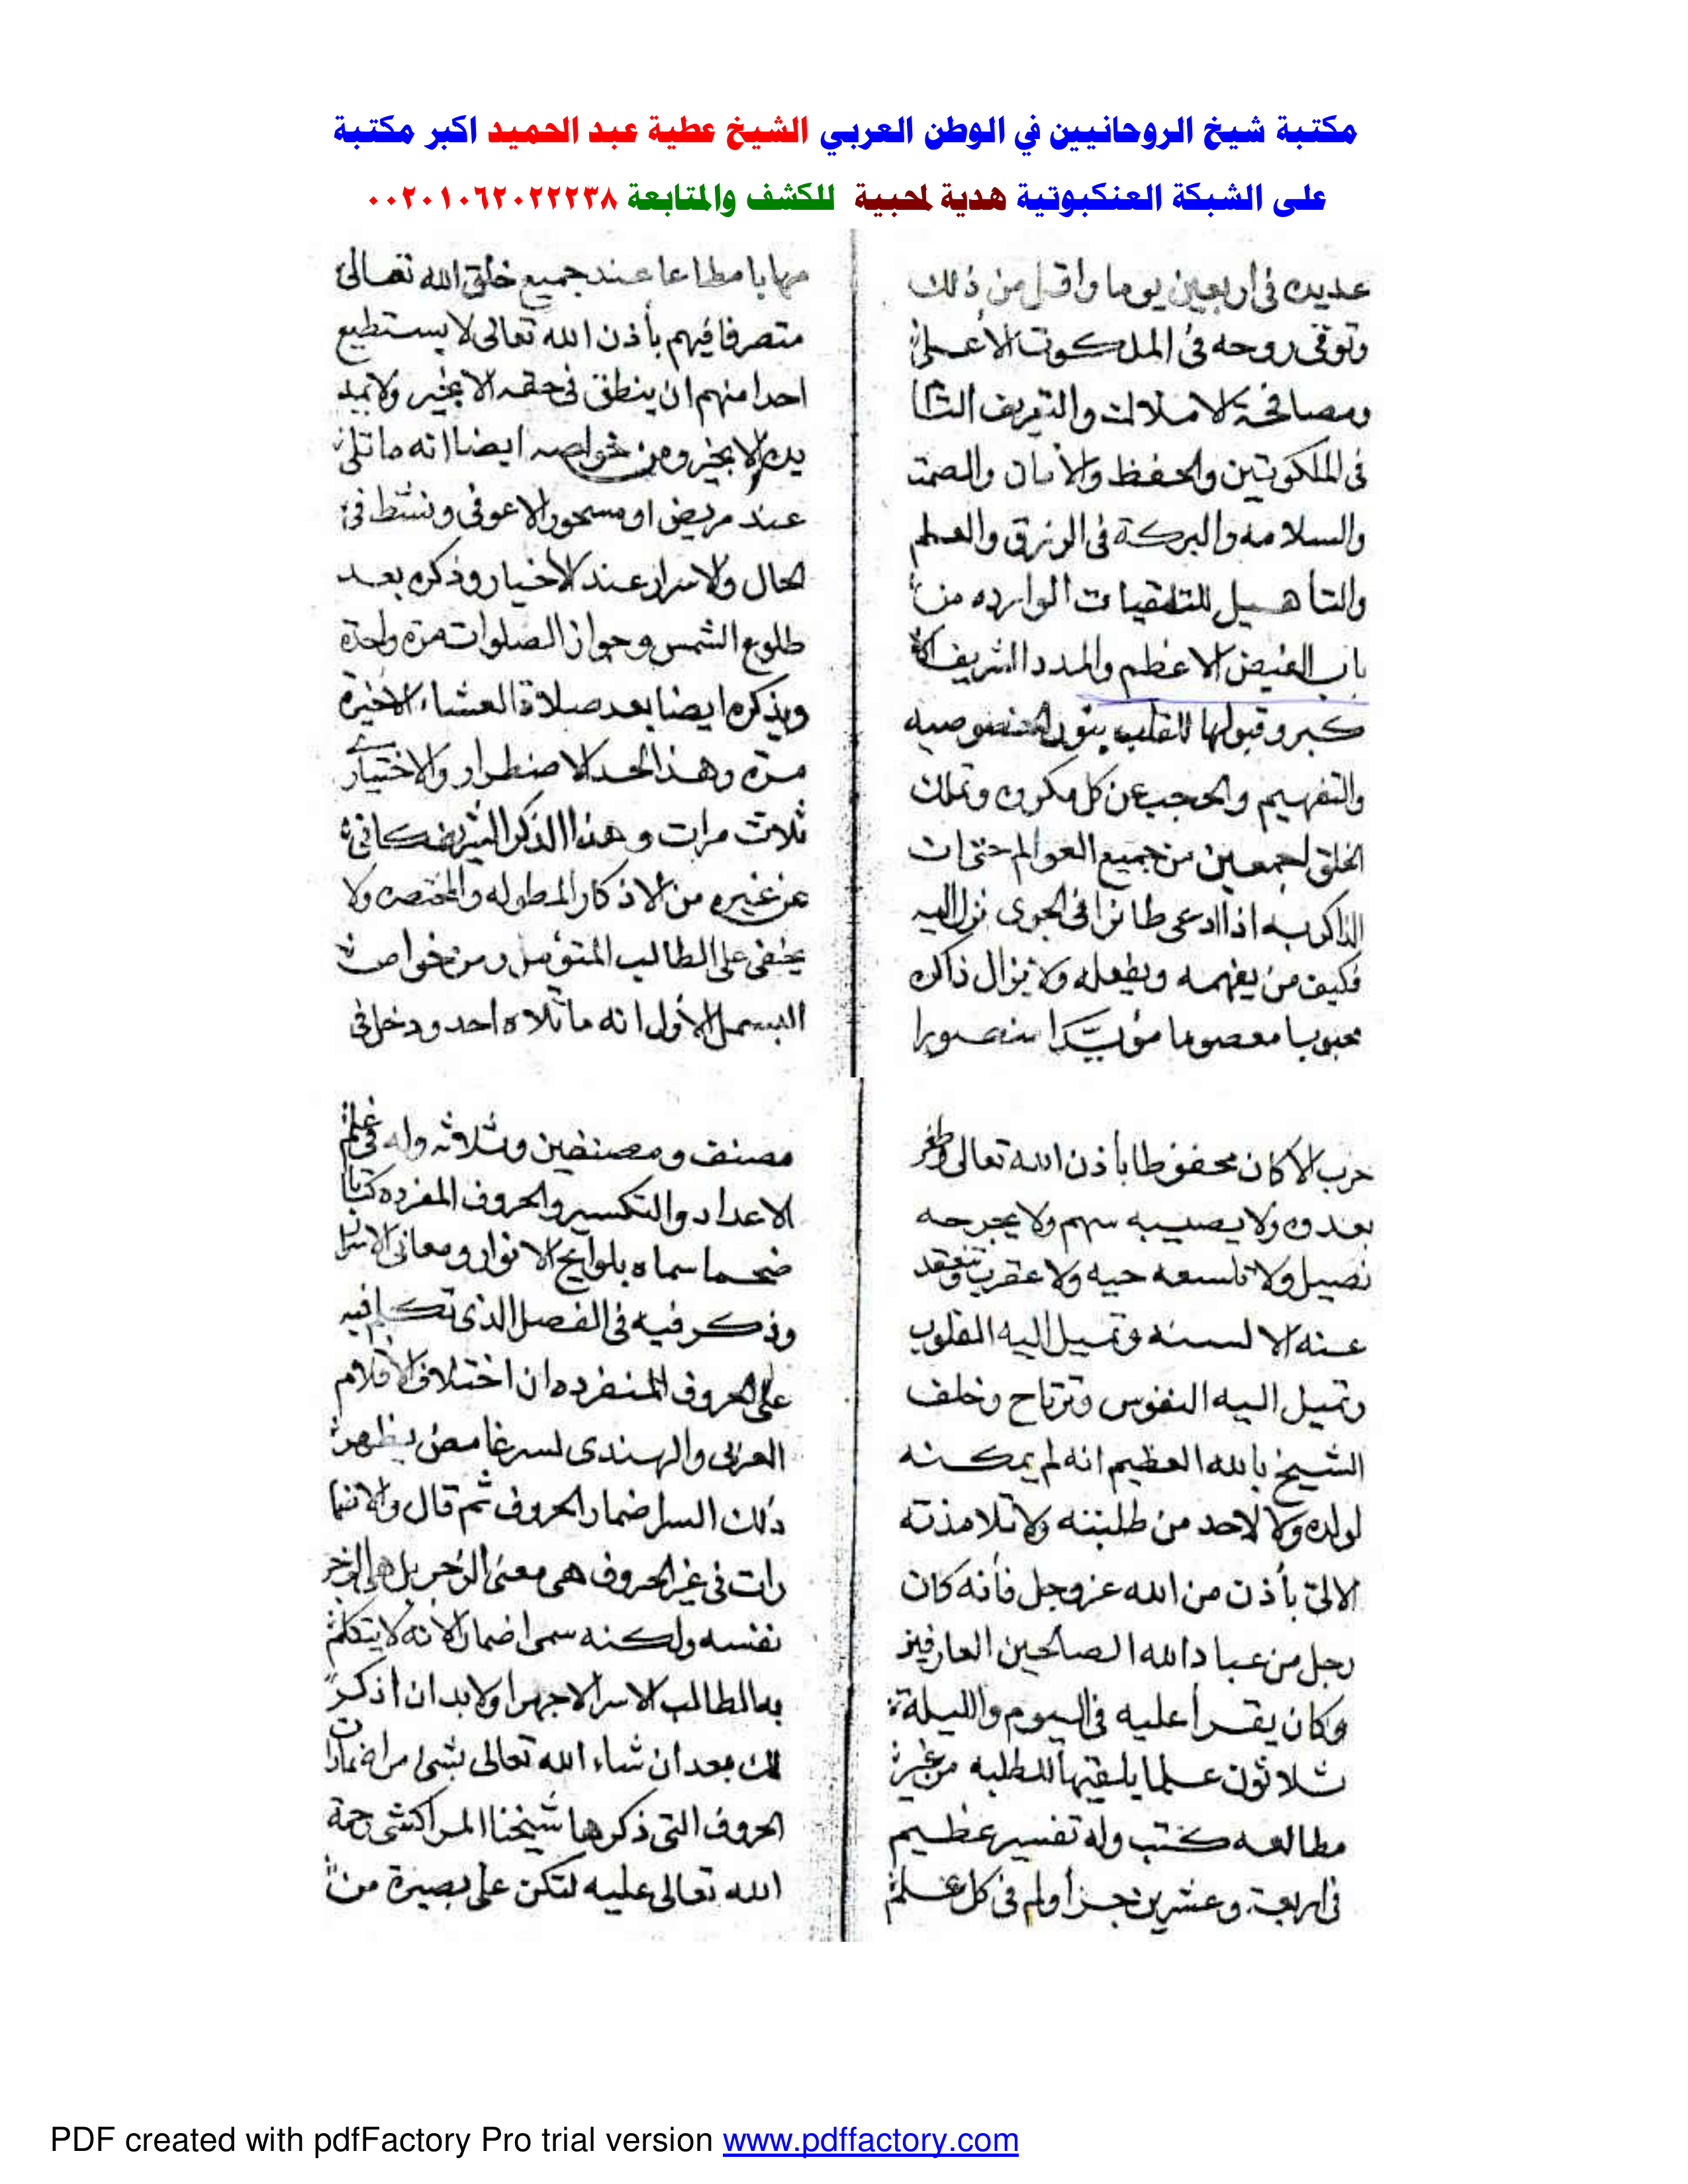 مكتبة شيخ الروحانيين في الوطن العربي الشيخ عطية عبد الحميد اكبر مكتبة
على الشبكة العنكبوتية هدية لمحبية للكشف والمتابعة ٠٠٢٠١٠٦٢٠٢٢٢٣٨
عديده فى اربعين يوما واقل من ذلك
وتوقى روحه فى الملكوت الأعلى
ومصافحة الاملاك والتعريف التا
فى الملكوتين والحفظ والأمان والصمت
والسلامه والبركة فى الرزق والعلم
والتأهيل للتلقيات الوارده من
باب الفيض الاعظم والمدد الشريف الا
كبر وقبولها للقلب بنور الخصوصيه
والتفهيم والحجب عن كل مكروه وتملك
الخلق اجمعين من جميع العوالم حتى ان
الذاكر به اذا ادعى طائرا فى الجوى نزل اليه
فكيف من يفهمه ويفعله ولا يزال ذاكره
محبوبا معصوما مؤيَّدا منصورا
مهابا مطاعا عند جميع خلق الله تعالى
متصرفا فيهم بأذن الله تعالى لا يستطيع
احدا منهم ان ينطق فى حقه الا بخير ولا يمد
يده الا بخير ومن خواصه ايضا انه ما تلى
عند مريض او مسحور الا عوفى ونشط فى
الحال والاسرار عند الاخيار وذكره بعد
طلوع الشمس وجواز الصلوات مرة واحدة
ويذكره ايضا بعد صلاة العشاء الاخيرة
مرة وهذا الحد الاضطرار والاختيار
ثلاث مرات وهذا الذكر الشريف كافى
عن غيره من الاذكار المطوله والمختصره ولا
يخفى على الطالب المتوصل ومن خواص
البسمل الأول انه ما تلاه احد ودخل فى
حرب الا كان محفوظا بأذن الله تعالى وظفر
بعدوه ولا يصيبه سهم ولا يجرحه
نصيل ولا تلسعه حيه ولا عقرب وتنعقد
عنه الا لسنه وتميل اليه القلوب
وتميل اليه النفوس وترتاح وخلف
الشيخ بالله العظيم انه لم يمكنه
لولده ولا لاحد من طلبته ولا تلامذته
الا لى بأذن من الله عز وجل فأنه كان
رجل من عباد الله الصالحين العارفين
وكان يقرأ عليه فى اليوم والليلة
ثلاثون علما يلقيها للطلبه من غير
مطالعه كتب وله تفسير عظيم
فى اربعة وعشرين جزأ وله فى كل علم
مصنف ومصنفين وثلاثه وله فى علم
الاعداد والتكسير والحروف المفرده كتابا
ضخما سماه بلوايح الانوار ومعانى الاسرا
وذكر فيه فى الفصل الذى تكلم فيه
على الحروف المنفرده ان اختلاف الاقلام
العربى والهندى لسر غامض يظهر
ذلك السر اضمار الحروف ثم قال والاضما
رات فى غير الحروف هى معنى الزجر بل هى الزجر
نفسه ولكنه سمى اضمارا لأنه لا يتكلم
به الطالب الا سرا لا جهرا ولا بد ان اذكر
لك بعد ان شاء الله تعالى بشئ من اضمارات
الحروف التى ذكرها شيخنا المراكشى رحمة
الله تعالى عليه لتكن على بصيرة من
PDF created with pdfFactory Pro trial version www.pdffactory.com